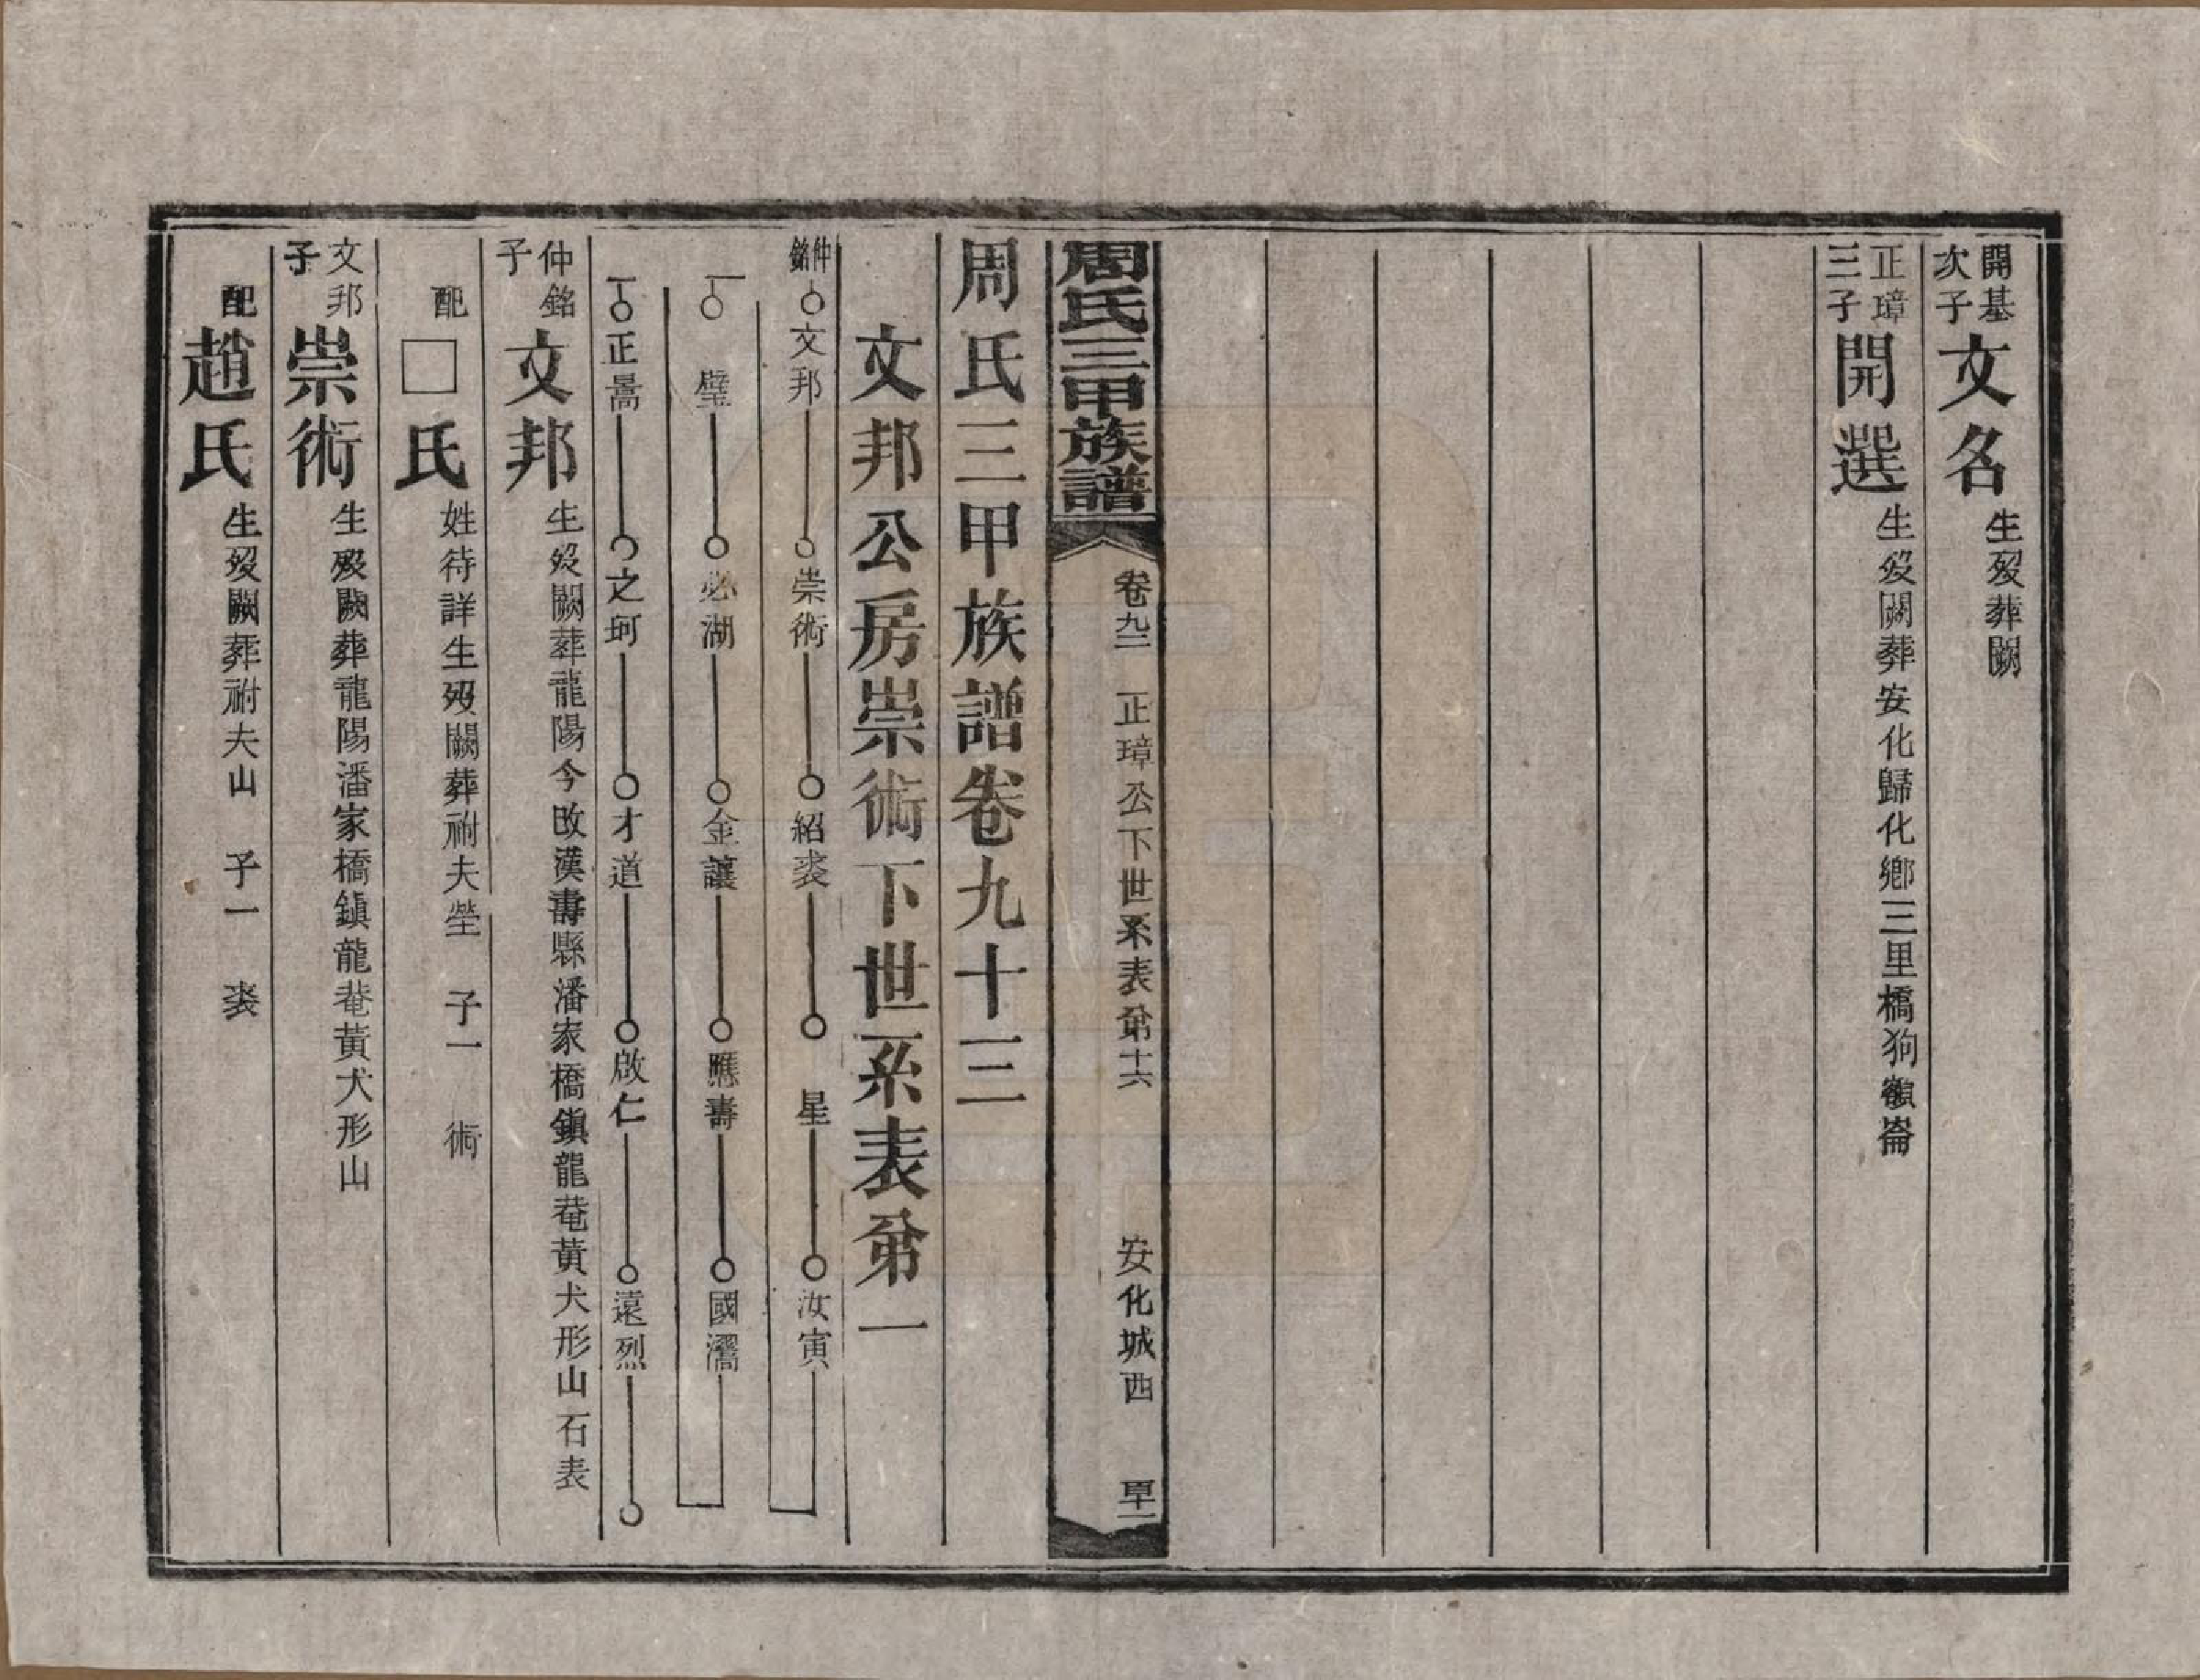 開基次子文名生歿葬闕
正璋三子開選生歿闕葬安化歸化鄉三里橋狗額崙
周氏三甲族譜
卷九二 正璋公下世系表弟十六
安化城西
周氏三甲族譜卷九十三
文邦公房崇術下世系表弟一
仲銘 文邦 崇術 紹裘 星 汝寅
璧 必湖 金讓 應壽 國
正暠 之珂 才道 啟仁 遠烈
仲銘子文邦生歿闕葬龍陽今改漢壽縣潘家橋鎮龍菴黃犬形山石表
配□氏姓待詳生歿闕葬祔夫塋 子一 術
文邦子崇術生歿闕葬龍陽潘家橋鎮龍菴黃犬形山
配趙氏生歿闕葬祔夫山 子一 裘